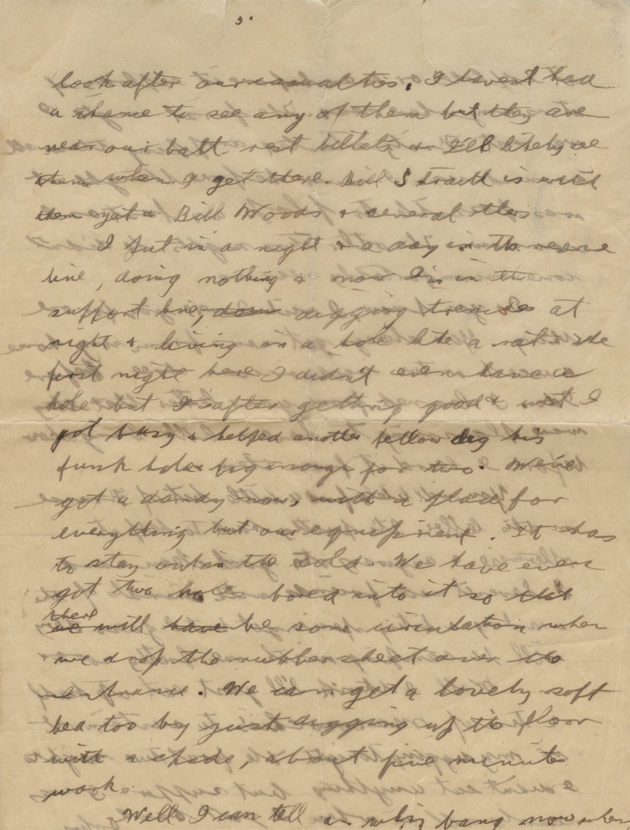 5.
look after our casualties. I haven't had
a chance to see any of them but they are
near our batt. rest billets & I'll likely see
them when I get there. Bill Strait is with
them yet & Bill Woods & several others.
I put in a night & a day in the reserve
line, doing nothing & now I'm in the
support line, digging trenches at
night & living in a hole like a rat. The
first night here I didn't even have a
hole but I after getting good & wet I
got busy & helped another fellow dig his
funk hole big enough for two. We've
got a dandy now, with a place for
everything but our equipment. It has
to stay out in the cold. We have even
got two holes bored into it so that
there will be some circulation when
we drop the rubber sheet over the
entrance. We can get a lovely soft
bed too by just digging up the floor
with a spade, about five minutes
work.
Well I can tell a whiz bang now when